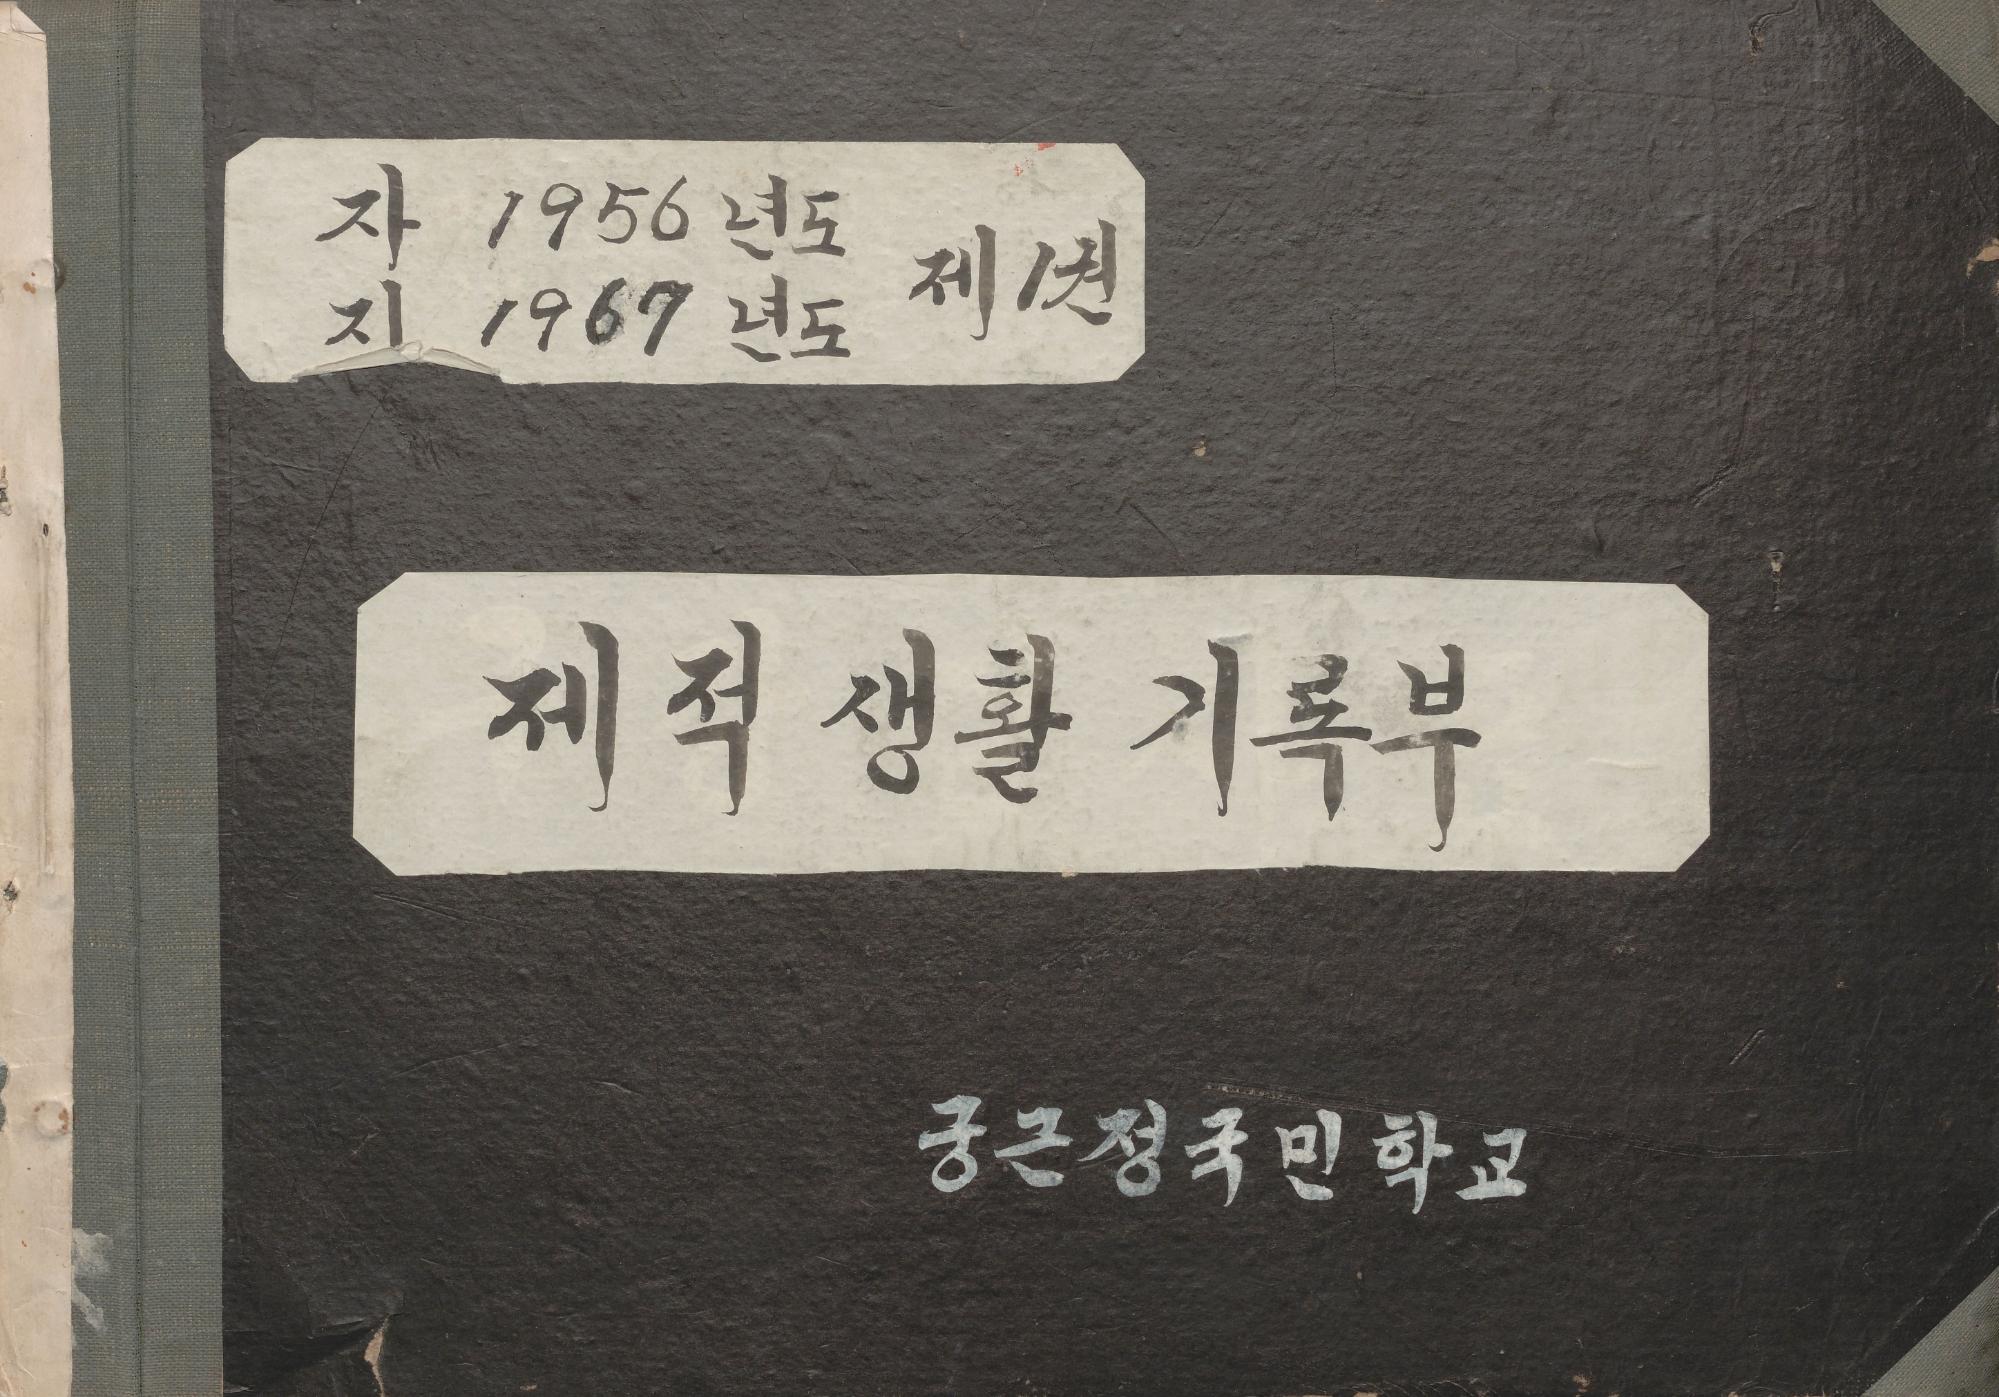 자 1956 년도
지 1967 년도
제 1권
제적 생활 기록부
궁근정국민학교